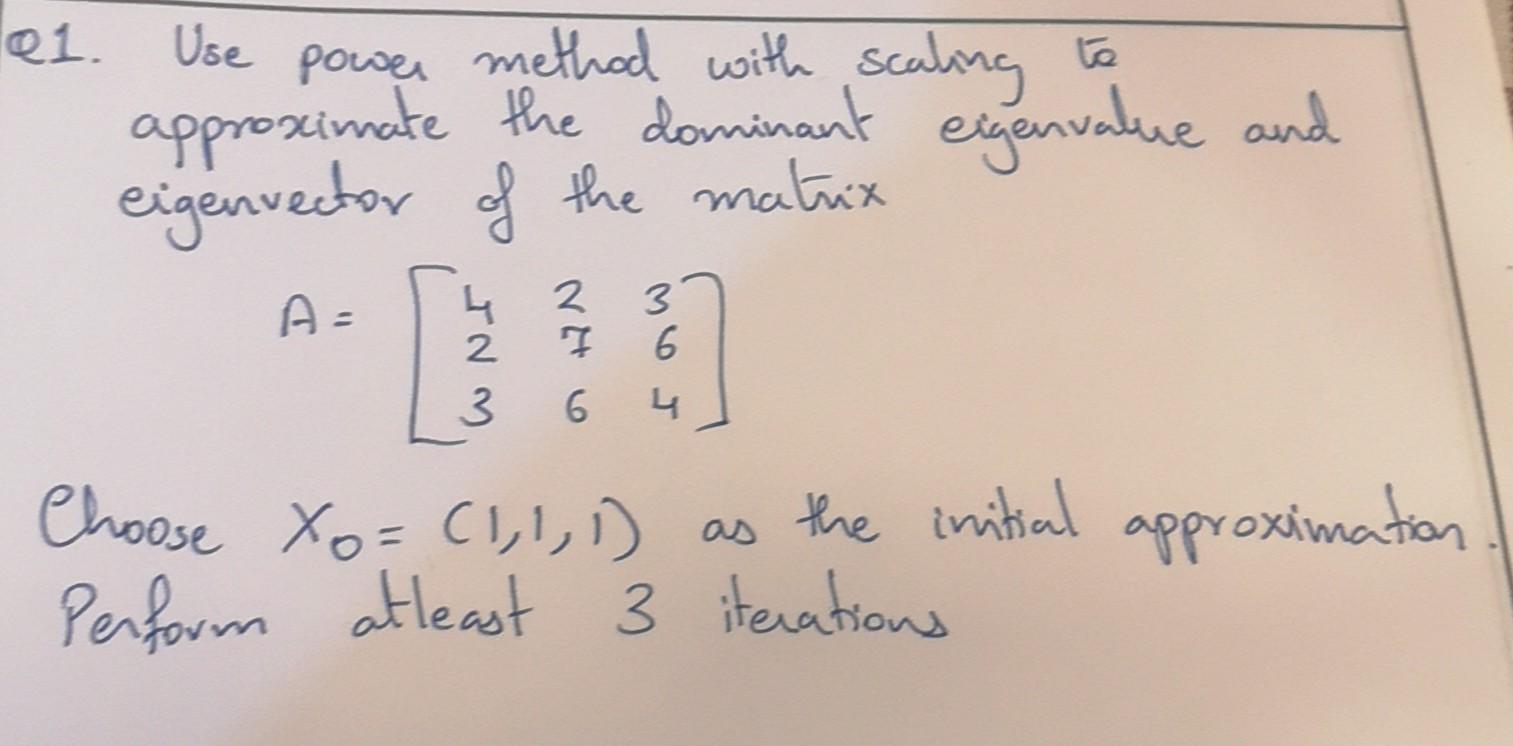 Q1. Use power method with scaling to
approximate the dominant eigenvalue and
eigenvector of the matrix
A = [4 2 3
2 7 6
3 6 4]
Choose X0 = (1,1,1) as the initial approximation.
Perform atleast 3 iterations